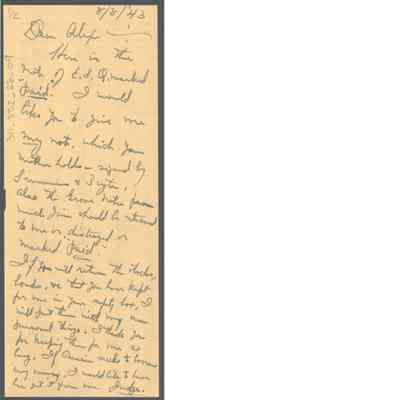 1/2
8/8/43
Dear Alex
Here is the
note of E.S.Q. marked
"Paid". I would
like you to give me
my note, which your
mother holds - signed by
& Sister,
Also the Grove Note
which should be returned
to me or destroyed or
marked Paid.
If you will return the
bonds, etc that you have kept
for me in your safety box, I
will put them with my own
personal things. I thank you
for keeping them for me so
long. If needs to borrow
any money, I would like to have
get it from me. Judge.